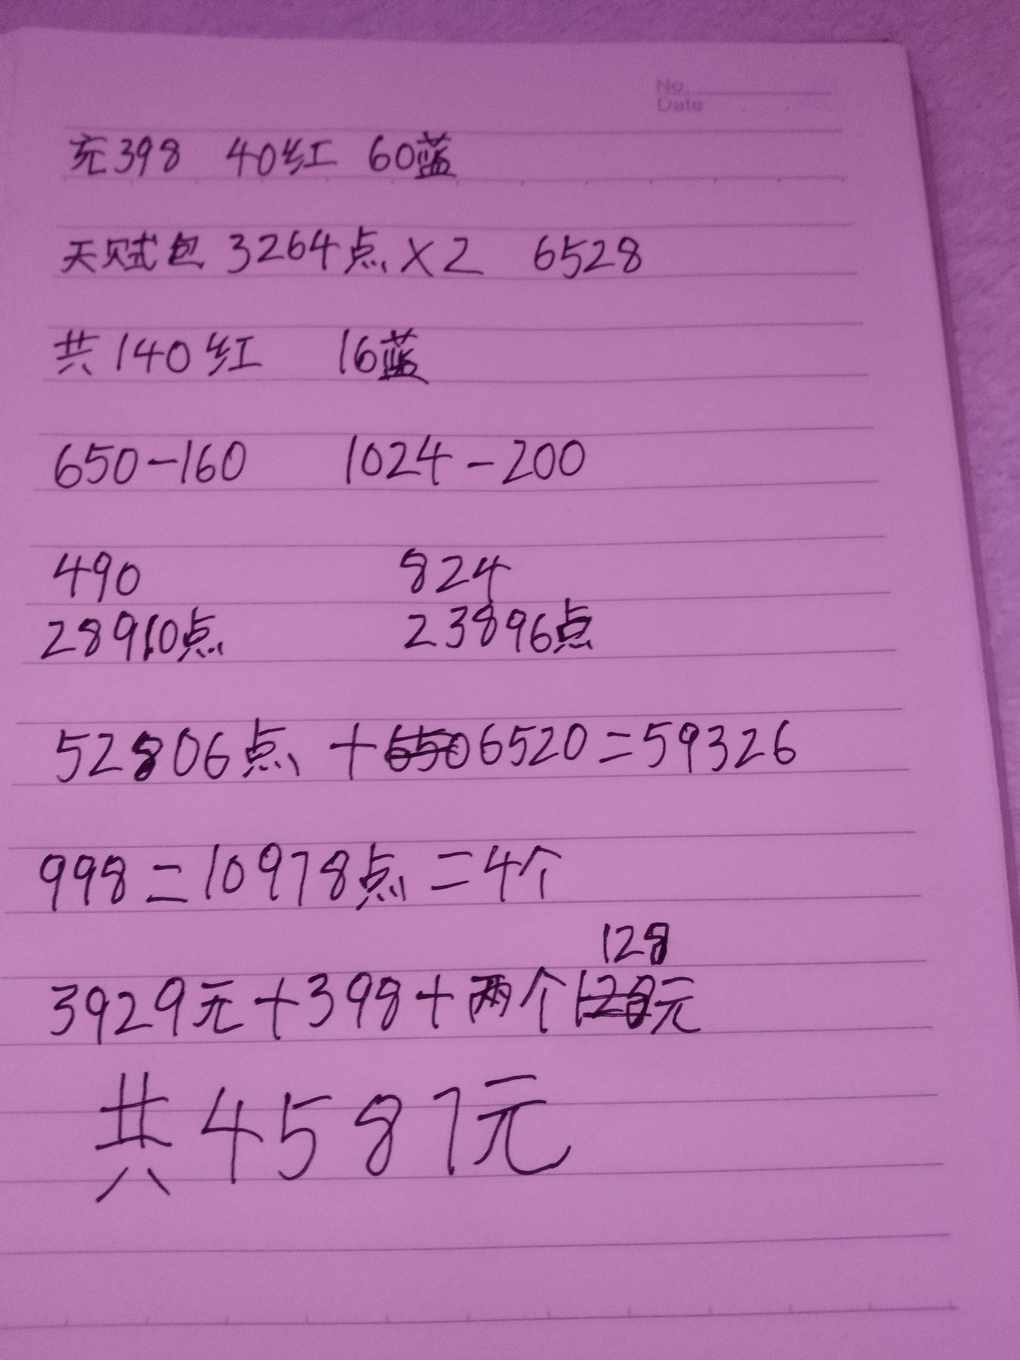 No
Date
充398 40红 60蓝
天赋包 3264点×2 6528
共140红 16蓝
650-160 1024-200
490 824
28910点 23896点
52806点+6506520=59326
998=10978点=4个
128
3929元+398+两个128元
共4587元